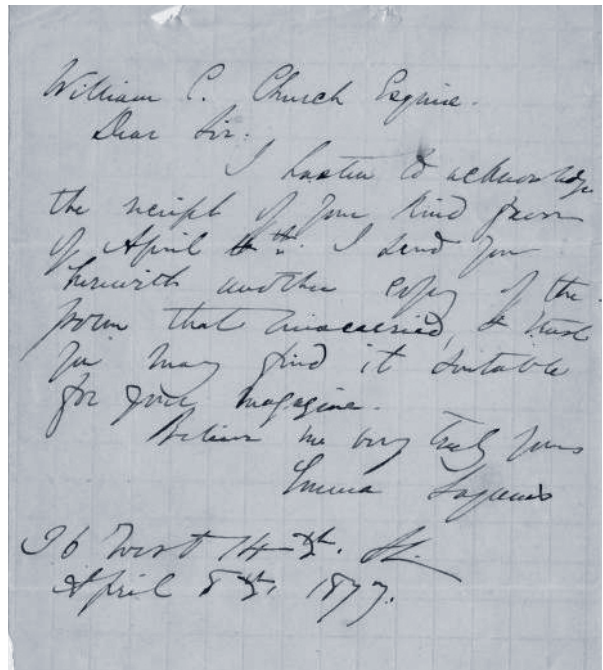 William C. Church Esquire.
Dear Sir:
I hasten to acknowledge
the receipt of your kind favor
of April 4th. I send you
herewith another copy of the
poem that miscarried, & trust
you may find it suitable
for your magazine.
Believe me very truly yours
Emma Lazarus
36 West 14th. St.
April 5th. 1877.